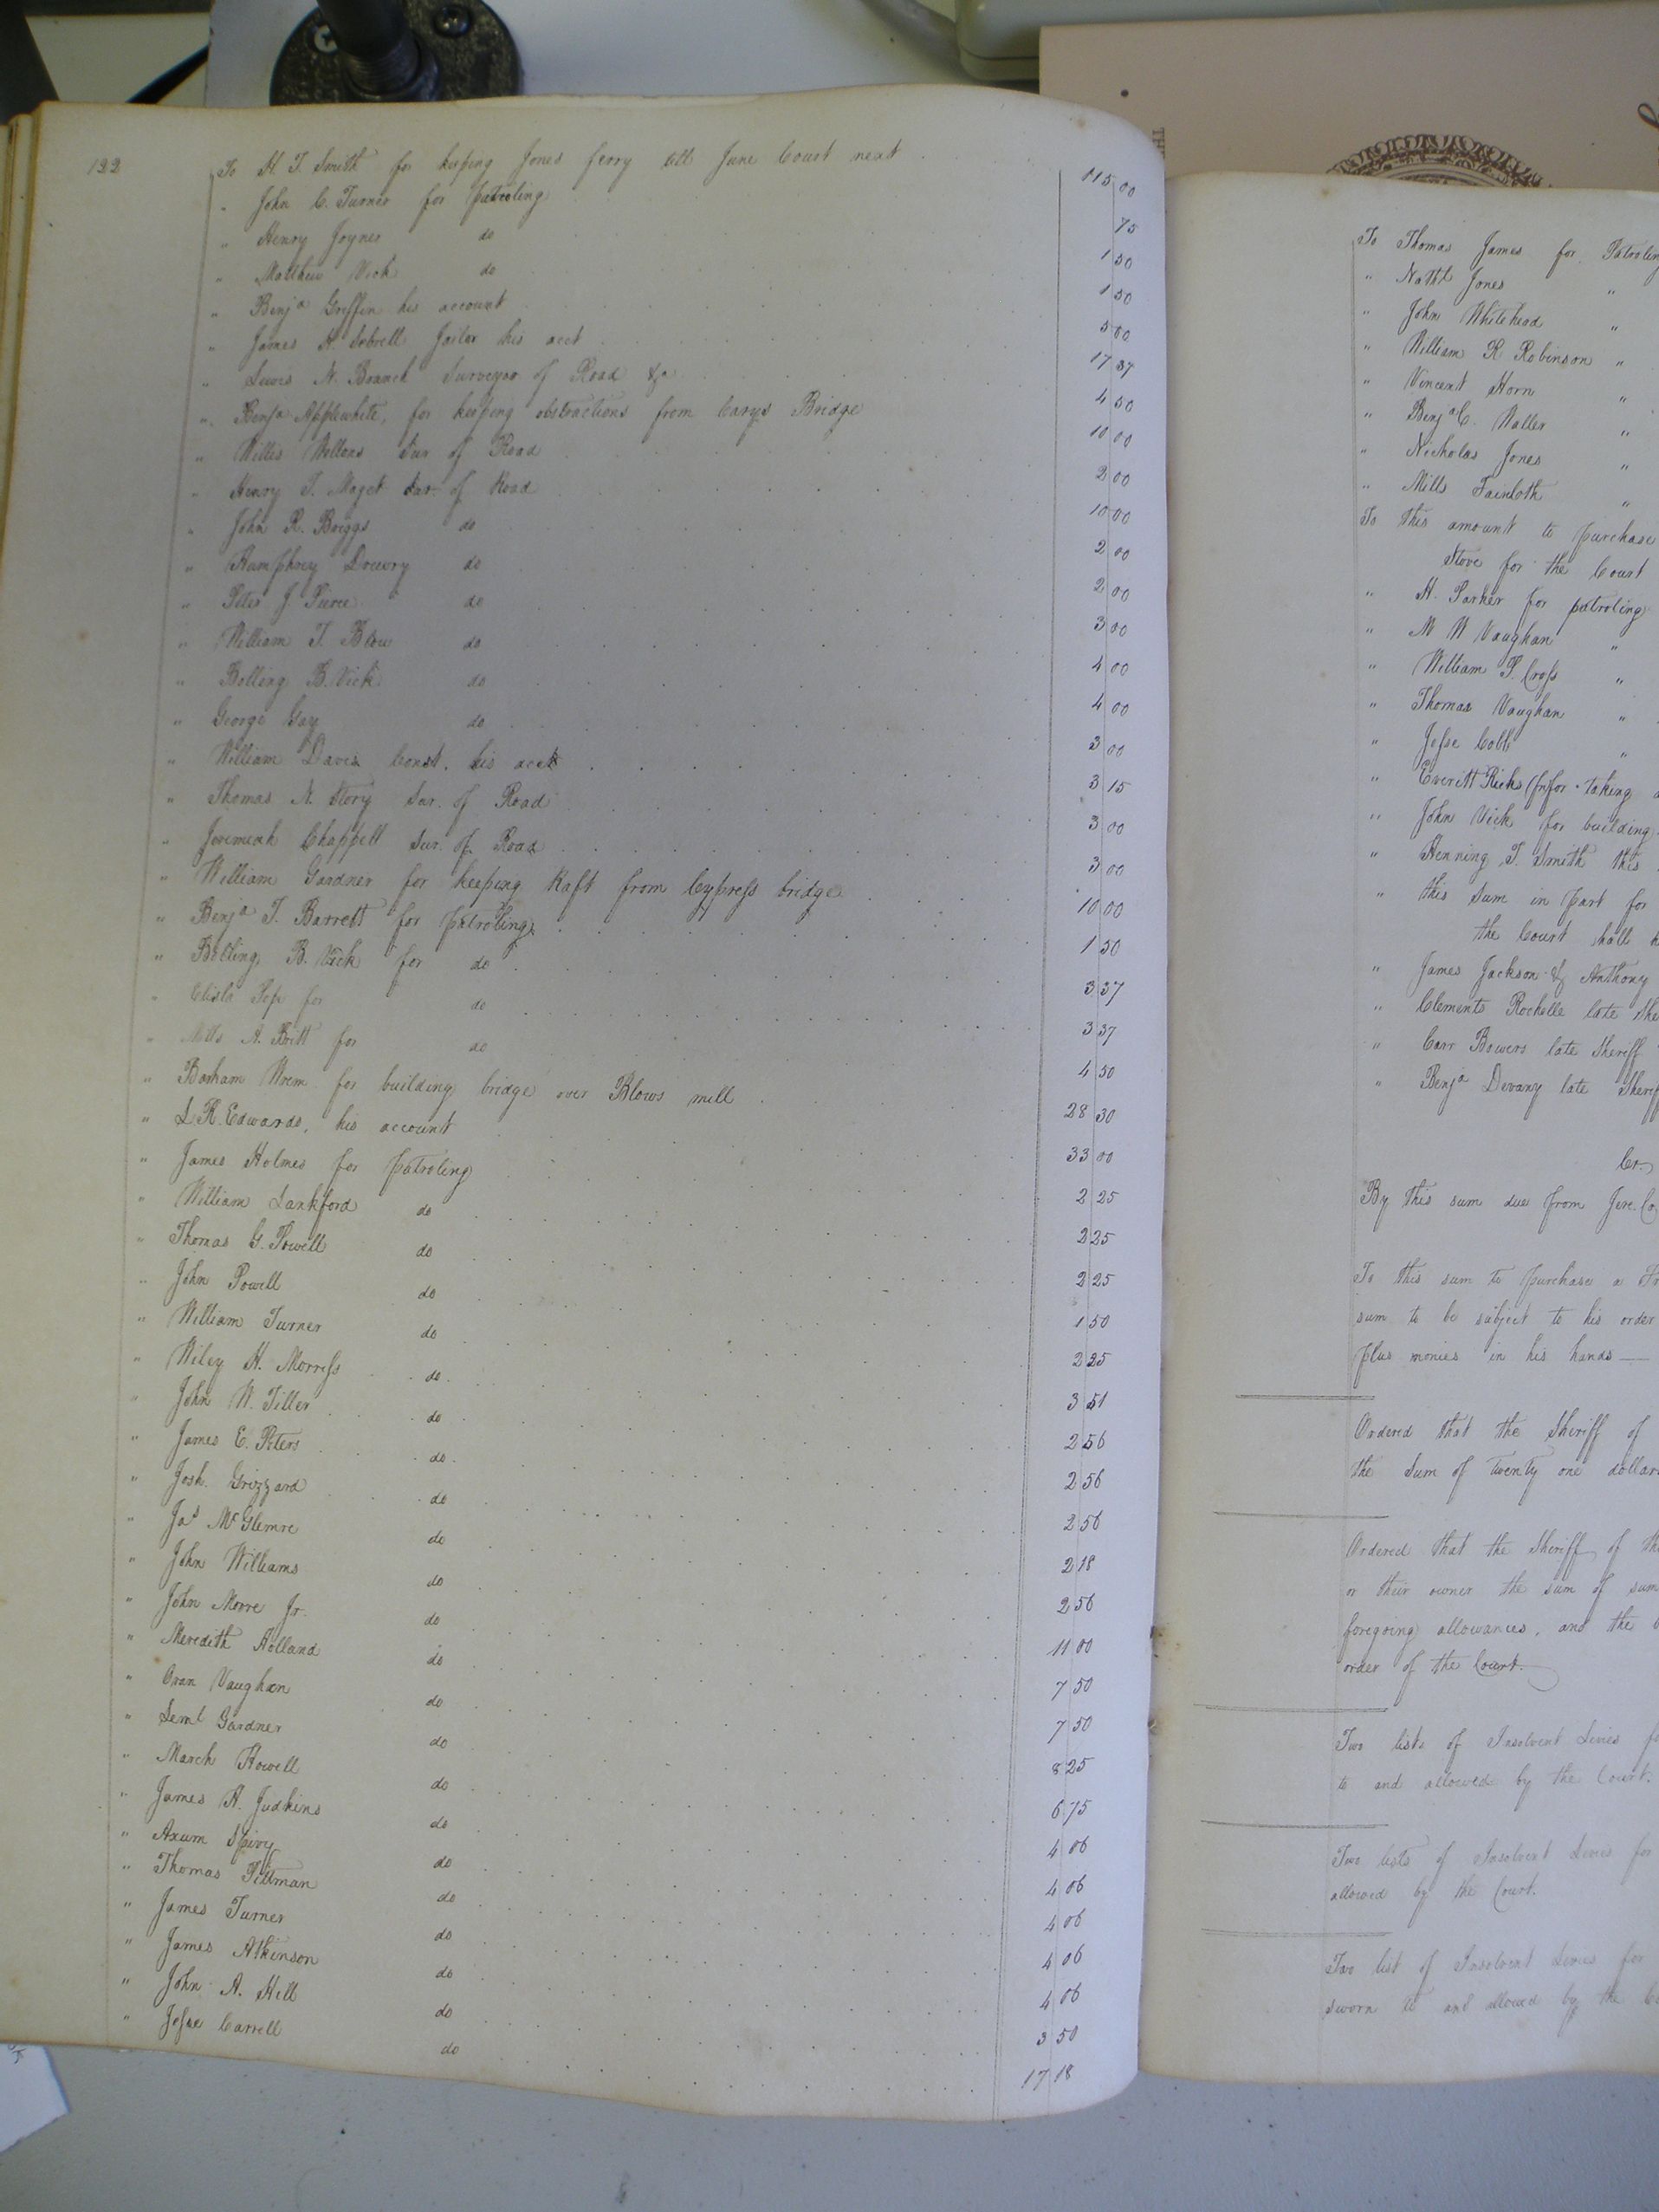 122
To H. T. Smith for keeping Jones ferry till June Court next 115 00
" John C. Turner for patroling 75
" Henry Joyner do 1 50
" Matthew Vick do 1 50
" Benja Griffin his account 5 00
" James H. Sebrell Jailor his acct 17 37
" Lewis N. Branch Surveyor of Road &c 4 50
" Benja Applewhite, for keeping obstructions from Carys Bridge 10 00
" Willis Sur of Road 2 00
" Henry T. Maget Sur of Road 10 00
" John R. Briggs do 2 00
" Humphrey Drewry do 2 00
" Peter J. Pierce do 3 00
" William T. Blow do 4 00
" Bolling B. Vick do 4 00
" George Gay do 3 00
" William Davis Const. his acct 3 15
" Thomas N. Story Sur. of Road 3 00
" Jeremiah Chappell Sur. of Road 3 00
" William Gardner for keeping Raft from Cypress bridge 10 00
" Benja T. Barrett for patroling 1 50
" Bolling B. Vick for do 3 37
" Elisha Pope for do 3 37
" Mills A. Britt for do 4 50
" Borham Wrem for building bridge over Blows mill 28 30
" L. R. Edwards, his account 33 00
" James Holmes for patroling 2 25
" William Lankford do 2 25
" Thomas G. Powell do 2 25
" John Powell do 1 50
" William Turner do 2 25
" Wiley H. Morress do 3 51
" John W. Tiller do 2 56
" James E. Peters do 2 56
" Josh. Grizzard do 2 56
" Jas McGlemre do 2 18
" John Williams do 2 56
" John Moore Jr. do 11 00
" Meredith Holland do 7 50
" Oran Vaughan do 7 50
" Leml Gardner do 8 25
" March Howell do 6 75
" James H. Judkins do 4 06
" Axum Spivy do 4 06
" Thomas Pittman do 4 06
" James Turner do 4 06
" James Atkinson do 4 06
" John A. Hill do 3 50
" Jesse Carrell do 17 18
To Thomas James for Patroling
" Nathl Jones "
" John Whitehead "
" William R Robinson "
" Vincent Horn "
" Benja C. Waller "
" Nicholas Jones "
" Mills Faircloth "
To this amount to purchase
Stove for the Court
" H. Parker for patroling
" M W Vaughan "
" William P. Cross "
" Thomas Vaughan "
" Jesse Cobb "
" Everitt Ricks for taking
" John Vick for building
" Henning T. Smith this
" this sum in part for
the Court shall
" James Jackson & Anthony
" Clements Rochelle late She
" Carr Bowers late Sheriff
" Benja Devany late Sherif
Cr.
By this sum due from Jere. Co
To this sum to purchase a
sum to be subject to his order
plus monies in his hands —
Ordered that the Sheriff of
the sum of twenty one dollars
Ordered that the Sheriff of th
or their owner the sum of sum
foregoing allowances, and the
order of the Court.
Two lists of Insolvent Levies fo
to and allowed by the Court.
Two lists of Insolvent Levies for
allowed by the Court.
Two list of Insolvent Levies for
sworn to and allowed by the Co